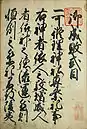 御成敗式目
一可修理神社専祭祀事
右神者依人之敬増威人
者依神之徳添運然則
恒例之祭祀不致陵夷